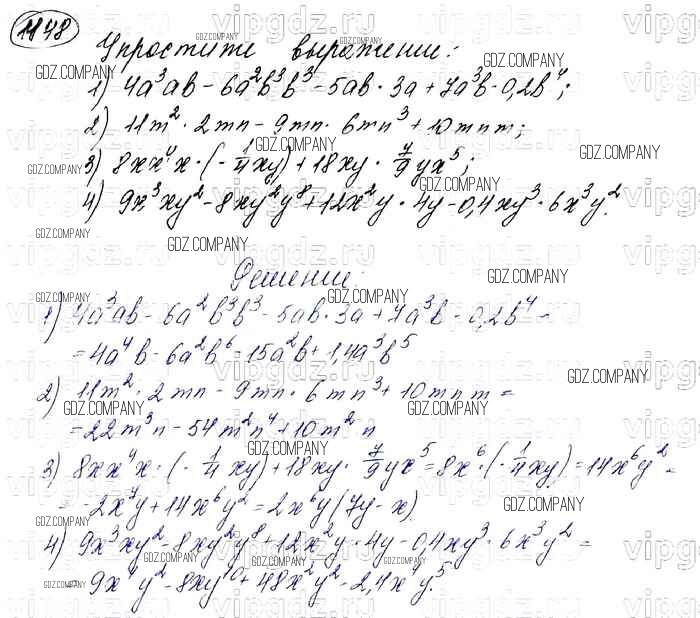 1148
Упростите выражение:
1) 4a³ab - 6a²b³b³ - 5ab · 3a + 7a³b · 0,2b⁴;
2) 11m² · 2mn - 9mn · 6mn³ + 10mnm;
3) 8xx⁴x · (- 1/4 xy) + 18xy · 7/9 yx⁵;
4) 9x³xy² - 8xy²y⁸ + 12x²y · 4y - 0,4xy³ · 6x³y².
Решение:
1) 4a³ab - 6a²b³b³ - 5ab · 3a + 7a³b · 0,2b⁴ =
= 4a⁴b - 6a²b⁶ - 15a²b + 1,4a³b⁵
2) 11m² · 2mn - 9mn · 6mn³ + 10mnm =
= 22m³n - 54m²n⁴ + 10m²n
3) 8xx⁴x · (- 1/4 xy) + 18xy · 7/9 yx⁵ = 8x⁶ · (- 1/4 xy) = 14x⁶y² =
= - 2x⁷y + 14x⁶y² = 2x⁶y (7y - x)
4) 9x³xy² - 8xy²y⁸ + 12x²y · 4y - 0,4xy³ · 6x³y² =
= 9x⁴y² - 8xy¹⁰ + 48x²y² - 2,4x⁴y⁵.
GDZ.COMPANY
vipgdz.ru